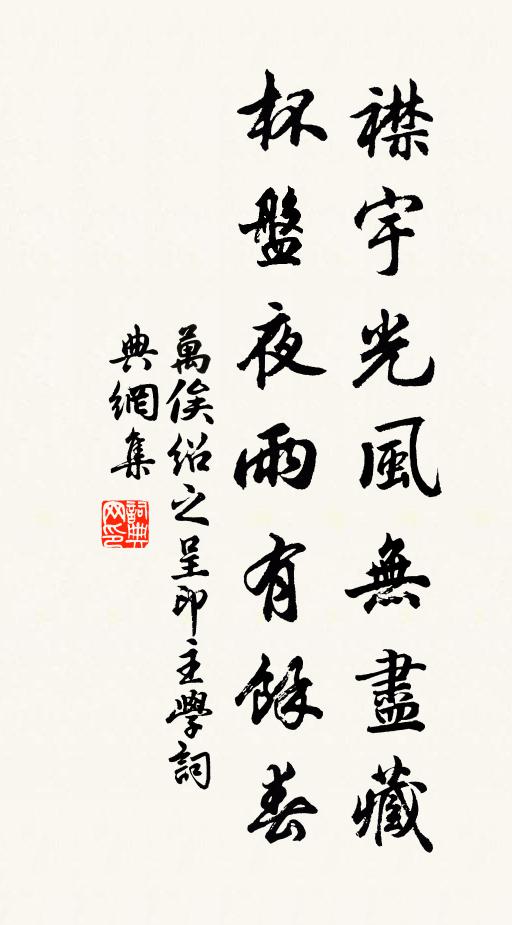 襟宇光風無盡藏
杯盤夜雨有餘春
萬俟紹之呈印主學詞
典網集
詞典
网印